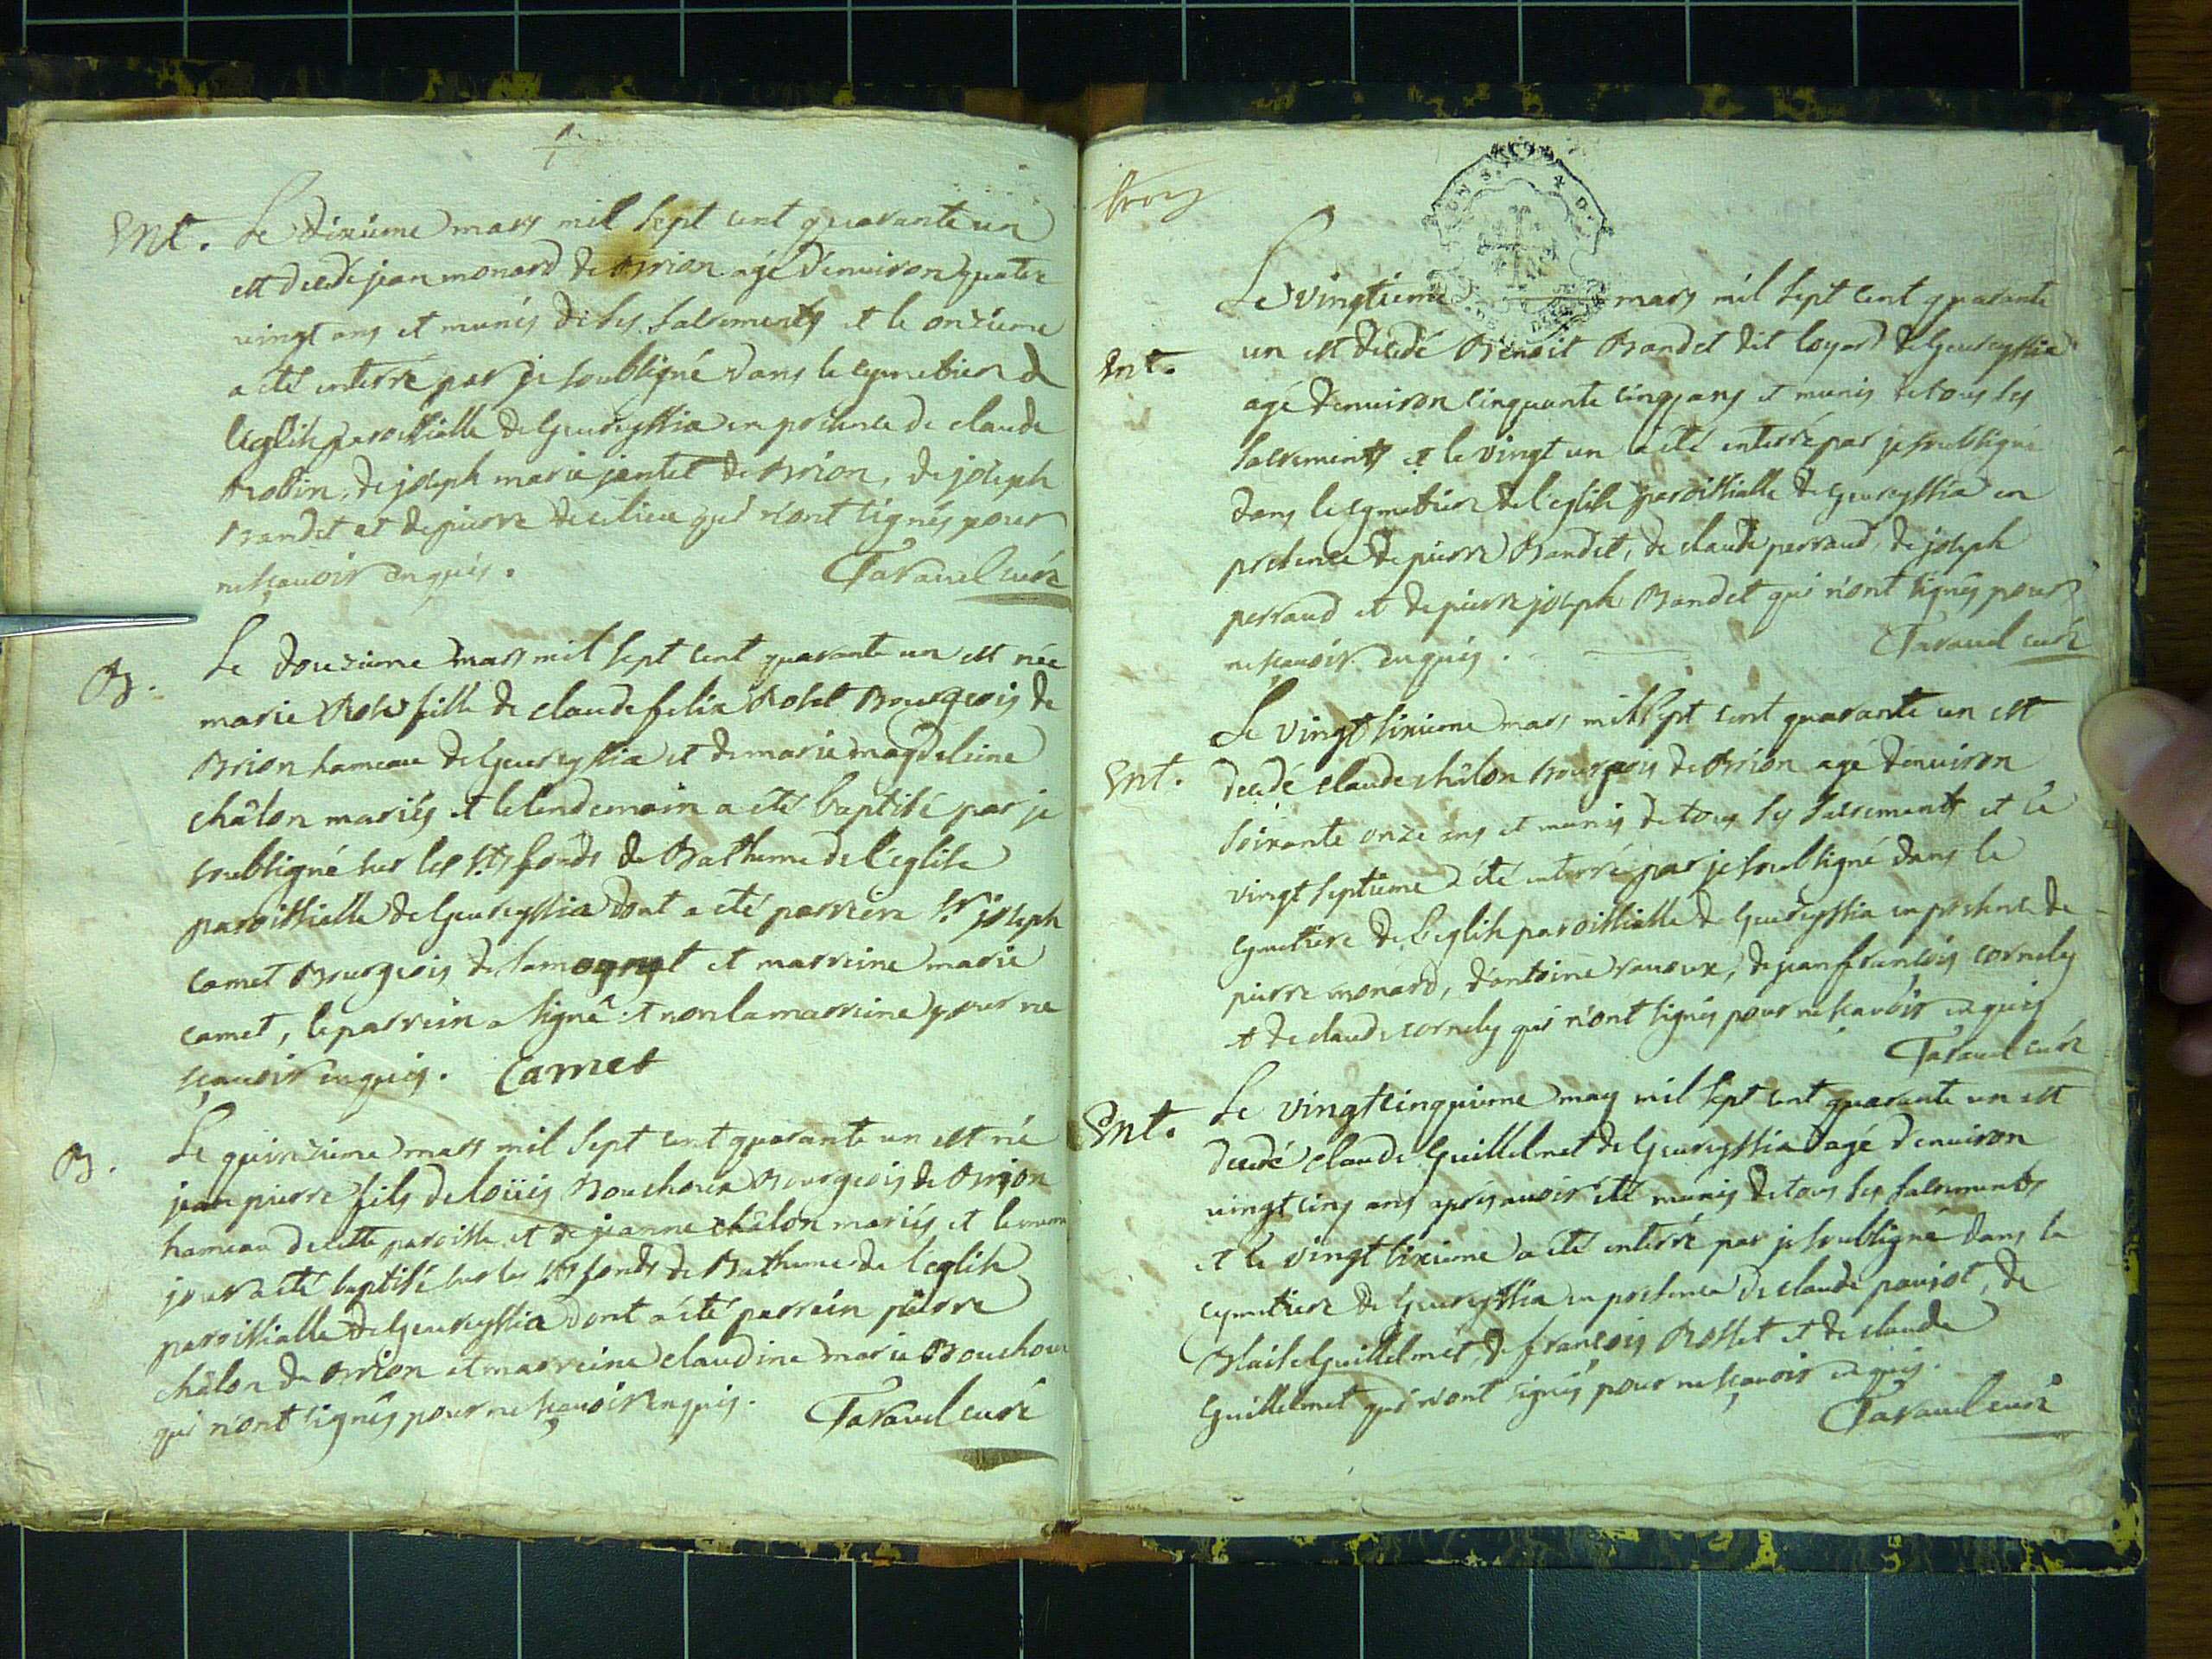 Ent. Le dixieme mars mil sept cent quarante un
est decedé jean monard de Brion agé d'environ quatre
vingt ans et munis de ses sacrements et le onzieme
a été enterré par je soubsigné dans le cymetiere de
l'eglise paroissialle de Geureyssia en presence de claude
Robin, de joseph marie jantet de Brion, de joseph
Bandet et de pierre decilieu qui n'ont signés pour
ne sçavoir enquis. Taravel curé
B. Le douzieme mars mil sept cent quarante un est née
marie Rolet fille de claude felix Rolet Bourgeois de
Brion hameau de Geureyssia et de marie magdeleine
châlon mariés et le lendemain a été baptisé par je
soubsigné sur les sts fonds de Batheme de l'eglise
paroissialle de Geureyssia dont a été parrein Sr joseph
camet Bourgeois de Samognat et marreine marie
camet, le parrein a signé et non la marreine pour ne
sçavoir enquis. Camet
B. Le quinzieme mars mil sept cent quarante un est né
jean pierre fils de loüis Bouchoux Bourgeois de Brion
hameau de cette paroisse et de jeanne châlon mariés et le meme
jour a été baptisé sur les sts fonds de Batheme de l'eglise
paroissialle de Geureyssia dont a été parrein pierre
châlon de Brion et marreine claudine marie Bouchoux
qui n'ont signés pour ne sçavoir enquis. Taravel curé
trois
Le vingtieme mars mil sept cent quarante
Ent. un est decedé Benoit Bandet dit loyard de Geureyssia
agé d'environ cinquante cinq ans et munis de tous ses
sacrements et le vingt un a été enterré par je soubsigné
dans le cymetiere de l'eglise paroissialle de Geureyssia en
presence de pierre Bandet, de claude perraud, de joseph
perraud et de pierre joseph Bandet qui n'ont signés pour
ne sçavoir enquis. Taravel curé
Le vingt sixieme mars mil sept cent quarante un est
Ent. decedé claude châlon bourgeois de Brion agé d'environ
soixante onze ans et munis de tous ses sacrements et le
vingt septieme a été enterré par je soubsigné dans le
cymetiere de l'eglise paroissialle de Geureyssia en presence de
pierre monard, d'antoine ravoux, de jean françois cornely
et de claude cornely qui n'ont signés pour ne scavoir enquis
Taravel curé
Ent. Le vingt cinquieme may mil sept cent quarante un est
decedé claude Guillelmet de Geureyssia agé d'environ
vingt cinq ans après avoir été munis de tous ses sacrements
et le vingt sixieme a été enterré par je soubsigné dans le
cymetiere de Geureyssia en presence de claude paujot, de
Blaise Guillelmet, de françois Rosset et de claude
Guillelmet qui n'ont signés pour ne sçavoir enquis.
Taravel curé